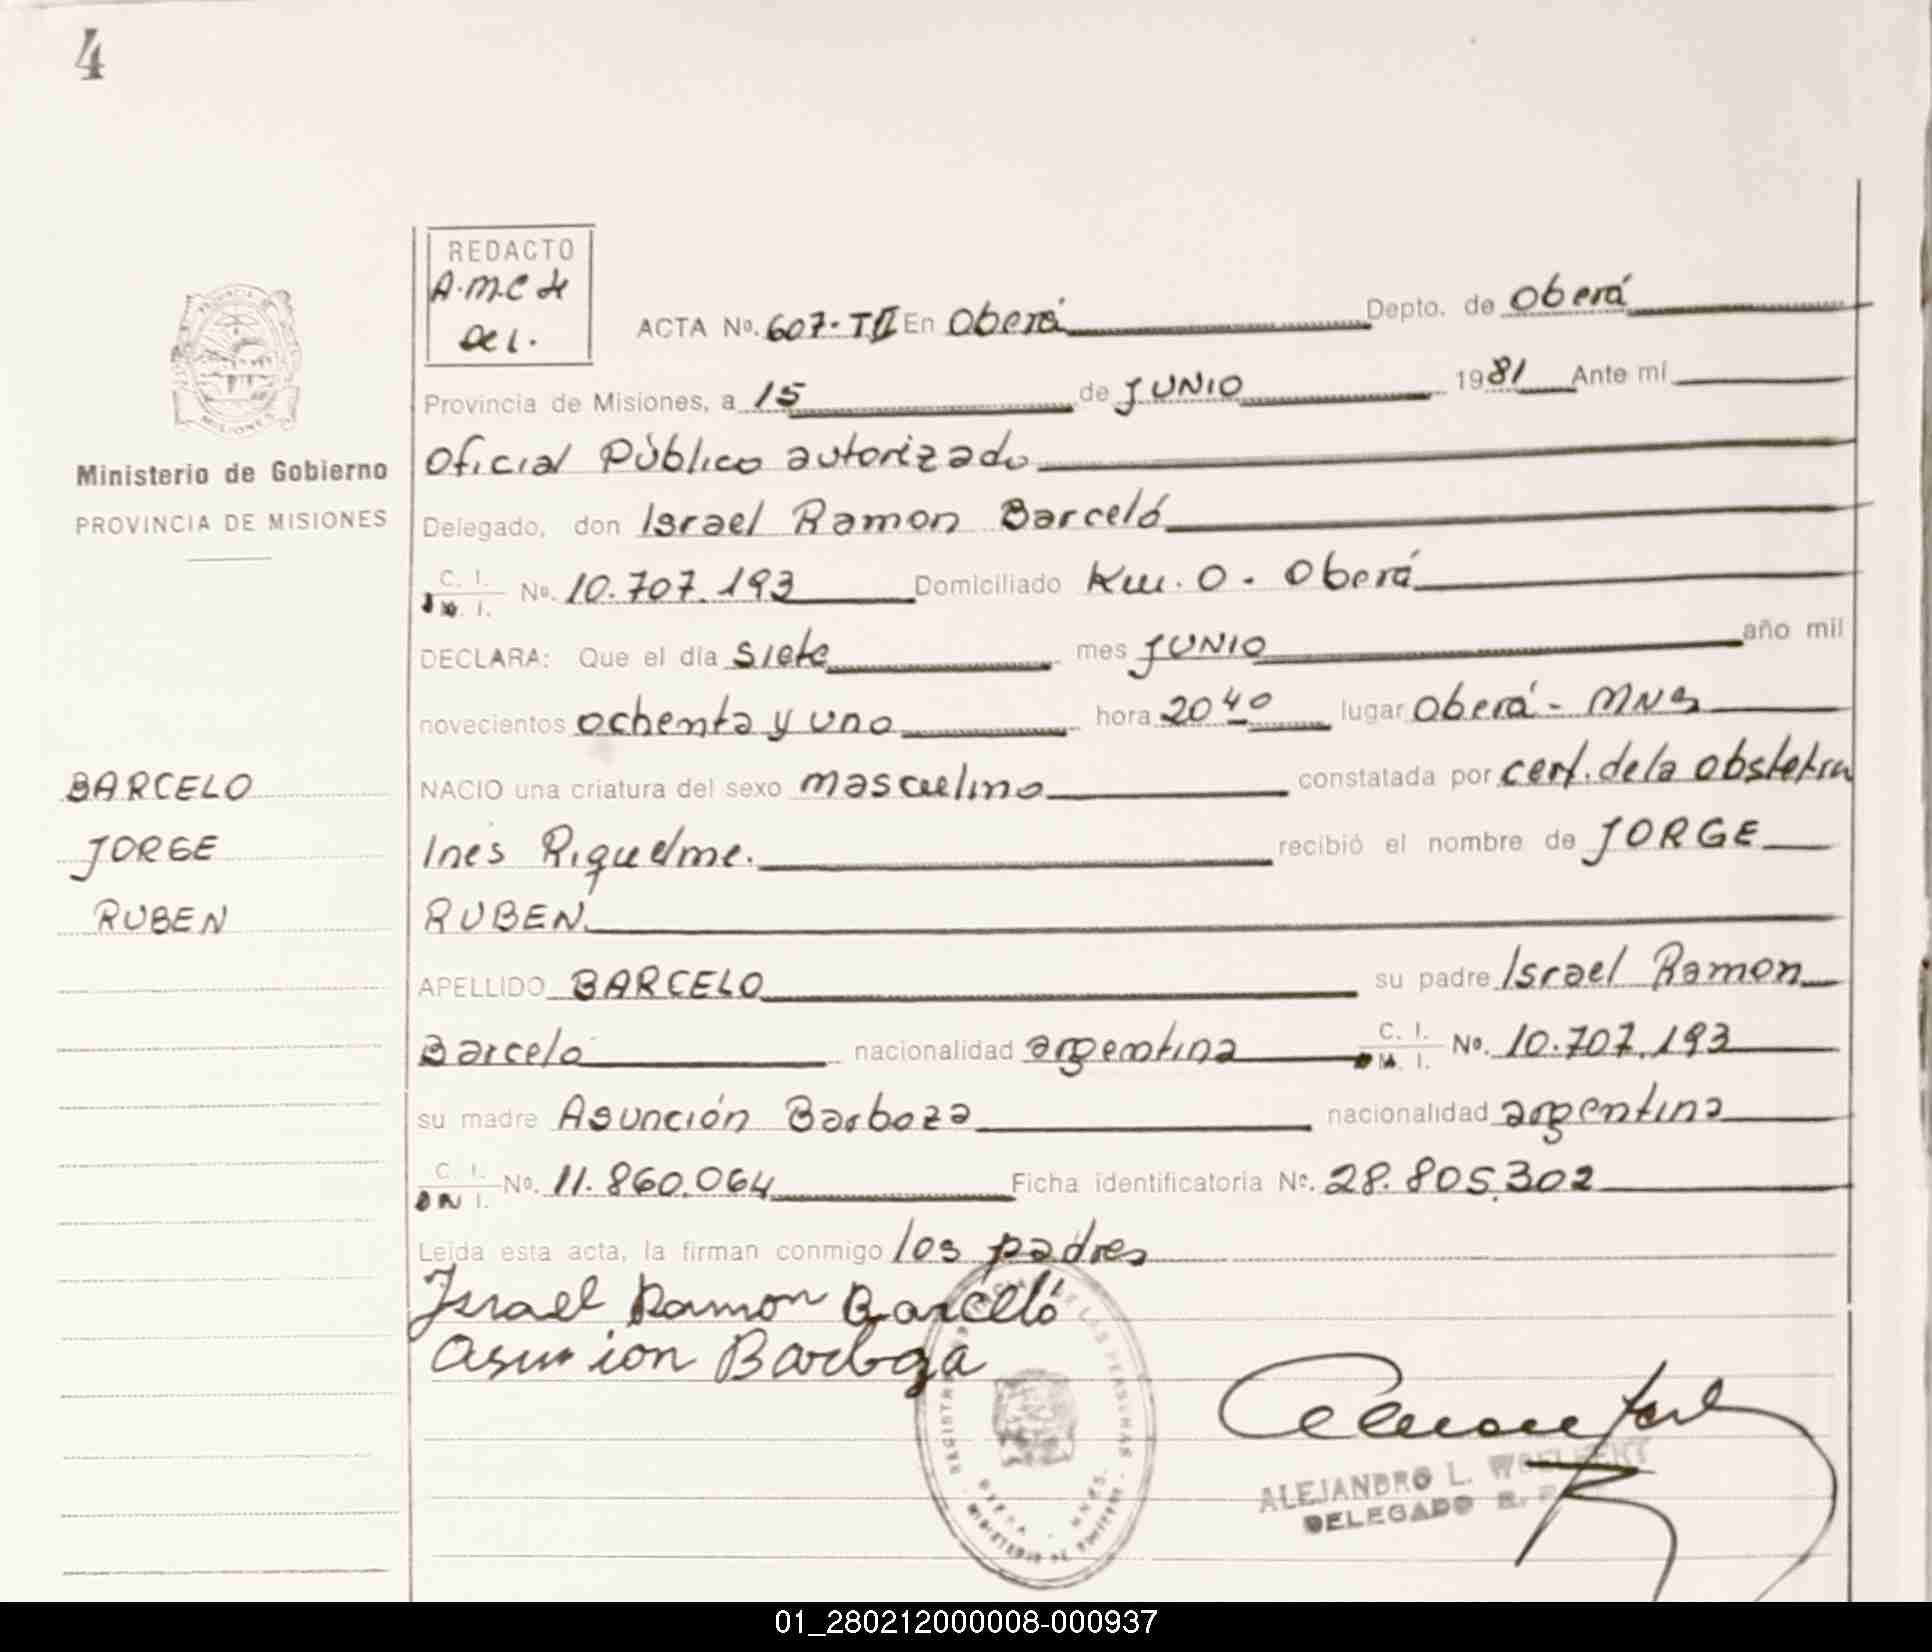 4
REDACTO
A.M.C de
Del.
ACTA No. 607-TII En Oberá Depto. de Oberá
Provincia de Misiones, a 15 de JUNIO 1981 Ante mí
Oficial Público autorizado
Ministerio de Gobierno
PROVINCIA DE MISIONES
Delegado, don Israel Ramon Barceló
C. I. No. 10.707.193 Domiciliado Km. 0 - Oberá
I.
DECLARA: Que el día siete mes JUNIO año mil
novecientos ochenta y uno hora 20 40 lugar Oberá - MNS
NACIO una criatura del sexo masculino constatada por cert. de la obstetra
Ines Riquelme. recibió el nombre de JORGE
RUBEN
BARCELO
JORGE
RUBEN
APELLIDO BARCELO su padre Israel Ramon
Barcelo nacionalidad argentina C. I. No. 10.707.193
I.
su madre Asunción Barboza nacionalidad argentina
C. I. No. 11.860.064 Ficha identificatoria No. 28.805.302
DN I.
Leída esta acta, la firman conmigo los padres
Israel Ramon Barceló
Asunsion Barboza
REGISTRO DE LAS PERSONAS
OBERA - MNES.
MINISTERIO DE GOBIERNO
ALEJANDRO L.
DELEGADO R. P.
01_280212000008-000937